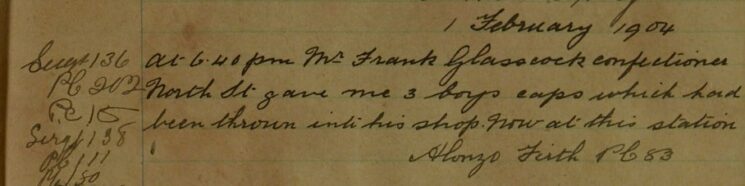 1 February 1904
Sergt 136 at 6.40 pm Mr Frank Glasscock confectioner
PC 202 North St gave me 3 boys caps which had
PC 15 been thrown into his shop. Now at this station
Sergt 138
PC 11 Alonzo Firth PC 83
PC 50